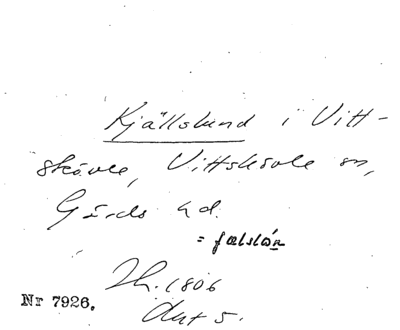 Kjällslund i Vitt-
skövle, Vittskövle sn,
Gärds hd.
= falslön
Th. 1806
Akt 5.
Nr 7926.